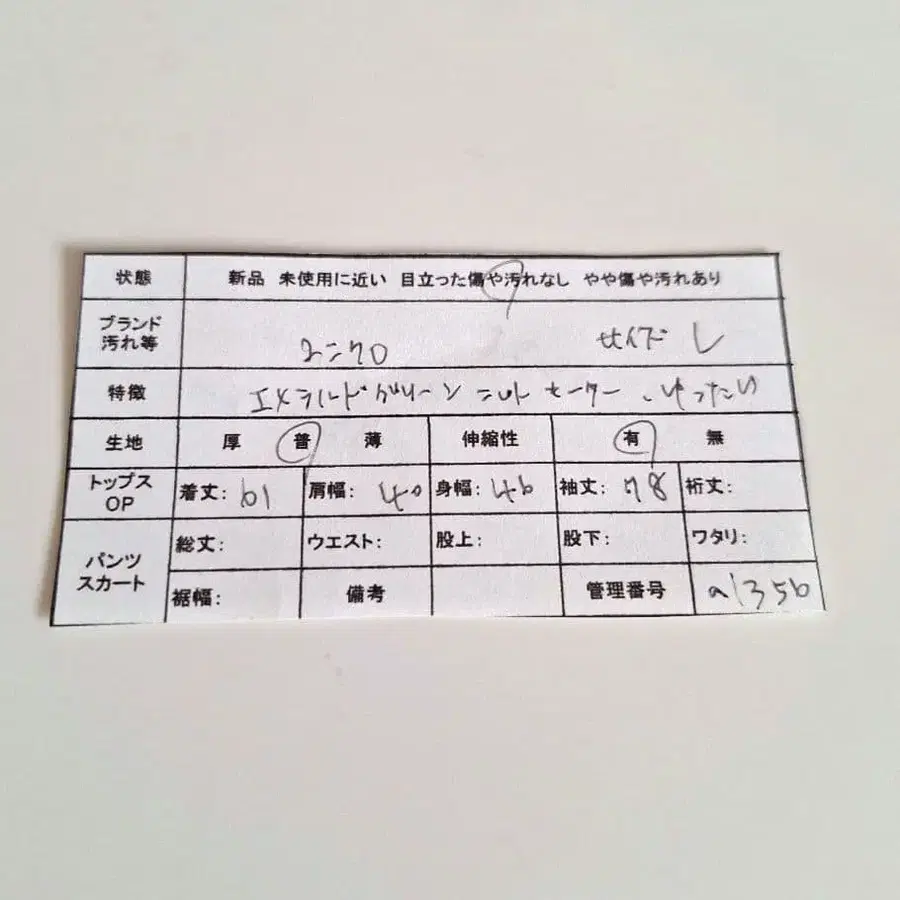 状態 新品 未使用に近い 目立った傷や汚れなし やや傷や汚れあり
ブランド
汚れ等 ユニクロ サイズ L
特徴 エメラルドグリーン ニット セーター、ゆったり
生地 厚 普 薄 伸縮性 有 無
トップス
OP 着丈: 61 肩幅: 40 身幅: 46 袖丈: 78 裄丈:
パンツ
スカート 総丈: ウエスト: 股上: 股下: ワタリ:
裾幅: 備考 管理番号 a1356